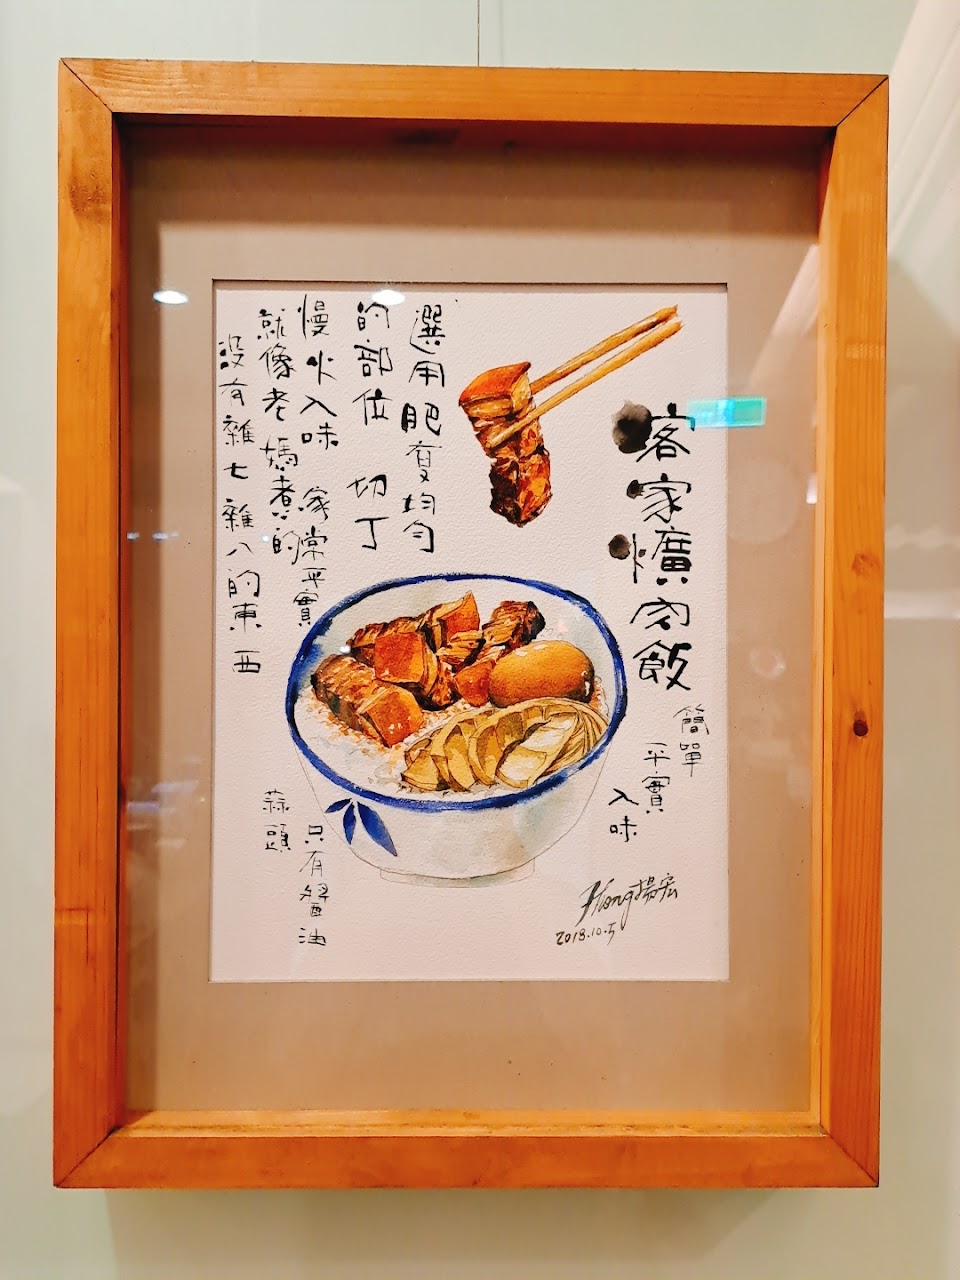 客家爌肉飯
簡單
平實
入味
Hong 揚宏
2018.10.5
選用肥瘦均勻
的部位 切丁
慢火入味 家常平實
就像老媽煮的
沒有雜七雜八的東西
只有醬油
蒜頭